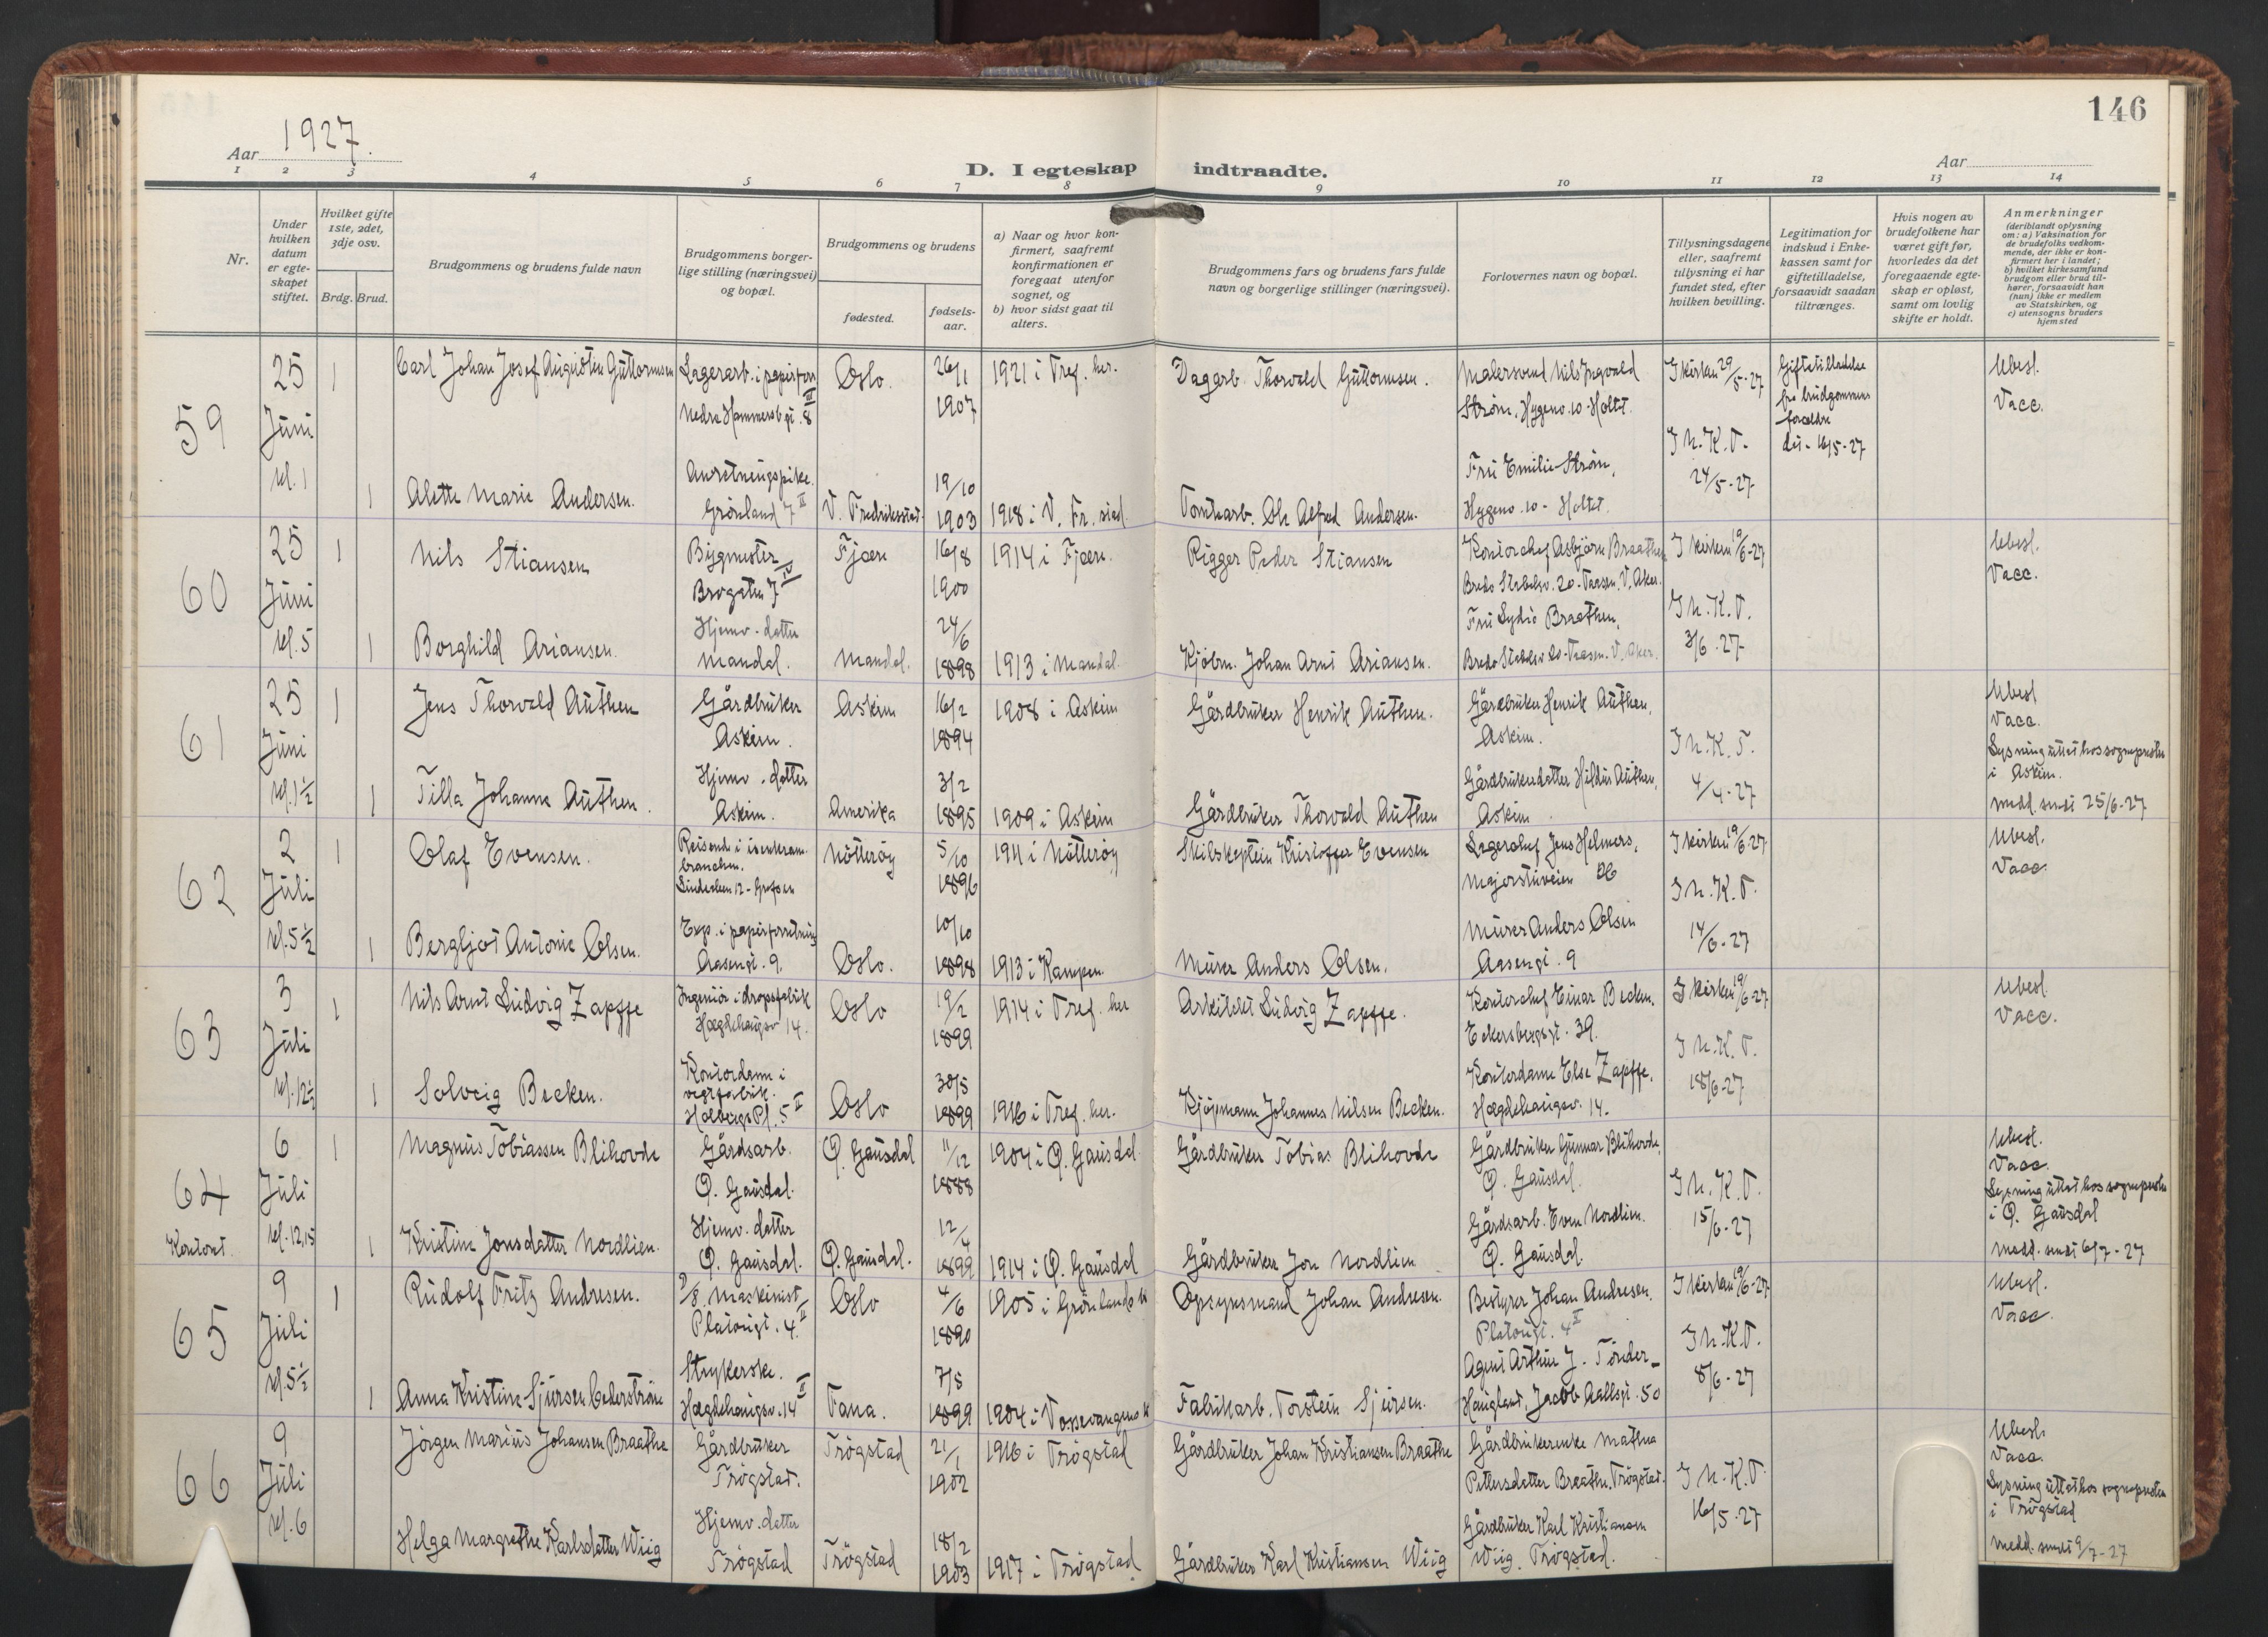 146
Aar 1927.
D. I egteskap indtraadte.
Aar
1 2 3 4 5 6 7 8 9 10 11 12 13 14
Nr.
Under hvilken datum er egteskapet stiftet.
Hvilket gifte 1ste, 2det, 3dje osv.
Brdg. Brud.
Brudgommens og brudens fulde navn
Brudgommens borgerlige stilling (næringsvei) og bopæl.
Brudgommens og brudens
fødested.
fødselsaar.
a) Naar og hvor konfirmert, saafremt konfirmationen er foregaat utenfor sognet, og
b) hvor sidst gaat til alters.
Brudgommens fars og brudens fars fulde navn og borgerlige stillinger (næringsvei).
Forlovernes navn og bopæl.
Tillysningsdagene eller, saafremt tillysning ei har fundet sted, efter hvilken bevilling.
Legitimation for indskud i Enkekassen samt for giftetilladelse, forsaavidt saadan tiltrænges.
Hvis nogen av brudefolkene har været gift før, hvorledes da det foregaaende egteskap er opløst, samt om lovlig skifte er holdt.
Anmerkninger (deriblandt oplysning om: a) Vaksination for de brudefolks vedkommende, der ikke er konfirmert her i landet; b) hvilket kirkesamfund brudgom eller brud tilhører, forsaavidt han (hun) ikke er medlem av Statskirken, og c) utensogns bruders hjemsted
59
25 Juni kl. 1
1 Carl Johan Josef Augustin Guttormsen
Lagerarb. i papirforr
Nedre Hammersb gt. 8 III
Oslo.
26/1 1907
1921 i Tref. her.
Dagarb. Thorvald Guttormsen.
Malersvend Nils Ingvald
Strøm, Hygenv. 10 - Holtet.
I kirken 29/5-27
Giftetilladelse
fra brudgommens
forældre
dat. 16/5-27
Ubesl.
Vacc.
1 Alette Marie Andersen.
Anretningspike.
Grønland 7 II
V. Fredrikstad.
19/10 1903
1918 i V. Fr. stad.
Tomtearb. Ole Alfred Andersen.
Fru Emilie Strøm,
Hygenv. 10 - Holtet.
I h. K. T.
24/5-27
60
25 Juni kl. 5
1 Nils Stiansen
Bygmester
Brogaten 7 IV
Fjære
16/8 1900
1914 i Fjære.
Rigger Peder Stiansen
Kontorchef Asbjørn Braathen
Bredo Stabelsv. 20 - Taasen. V. Aker.
I kirken 19/6-27
Ubesl.
Vacc.
1 Borghild Ariansen.
Hjemv. datter
Mandal.
Mandal.
24/6 1898
1913 i Mandal.
Kjøbm. Johan Arnt Ariansen.
Fru Lydie Braathen,
Bredo Stabelsv. 20 - Taasen. V. Aker.
I h. K. T.
3/6-27
61
25 Juni kl. 1 1/2
1 Jens Thorvald Authen
Gårdbruker
Askim.
Askim
16/2 1894
1908 i Askim
Gårdbruker Henrik Authen.
Gårdbruker Henrik Authen,
Askim.
I h. K. T.
4/4-27
Ubesl
Vacc.
Lysning uttat hos sognepresten
i Askim.
medd. sendt 25/6-27
1 Tilla Johanne Authen.
Hjemv. datter
Askim.
Amerika
3/2 1895
1909 i Askim
Gårdbruker Thorvald Authen
Gårdbrukerdatter Hildur Authen,
Askim
62
2 Juli kl. 5 1/2
1 Olaf Evensen.
Reisende i isenkram-
branchen.
Nøtterøy
5/10 1896
1911 i Nøtterøy
Skibskaptein Kristoffer Evensen
Lagerchef Jens Helmers,
Majorstuveien
I kirken 19/6-27
Ubesl.
Vacc.
1 Bergljot Antonie Olsen.
Exp. i papirforretning
Aasengt. 9.
Oslo.
10/10 1898
1913 i Kampen.
Murer Anders Olsen.
Murer Anders Olsen
Aasengt. 9
I h. K. T.
14/6-27
63
3 Juli kl. 12 1/2
1 Nils Arnt Ludvig Zapffe
Ingeniør i dropsfabrik
Hægdehaugsv. 14.
Oslo
19/2 1899
1914 i Tref. her
Arkitekt Ludvig Zapffe.
Kontorchef Einar Becken,
Eckersbergsgt. 39.
I kirken 19/6-27
Ubesl.
Vacc.
1 Solveig Becken.
Kontordame i
vegtfabrik.
Holbergs Pl. 5 II
Oslo
30/5 1899
1916 i Tref. her.
Kjøpmann Johannes Nilsen Becken.
Kontordame Else Zapffe,
Hægdehaugsv. 14.
I h. K. T.
18/6-27
64
Kontoret.
6 Juli kl. 12,15
1 Magnus Tobiassen Blihovde
Gårdsarb.
Ø. Gausdal.
Ø. Gausdal
11/12 1888
1904 i Ø. Gausdal.
Gårdbruker Tobias Blihovde
Gårdbruker Gunnar Blihovde,
Ø. Gausdal.
I h. K. T.
15/6-27
Ubesl.
Vacc.
Lysning uttat hos sognepresten
i Ø. Gausdal
medd. sendt 6/7-27
1 Kristine Jonsdatter Nordlien.
Hjemv. datter
Ø. Gausdal.
Ø. Gausdal.
12/4 1899
1914 i Ø. Gausdal
Gårdbruker Jon Nordlien
Gårdsarb. Even Nordlien.
Ø. Gausdal.
65
9 Juli kl. 5 1/2
1 Rudolf Fritz Andresen.
D/S. Maskinist
Platougt. 4. II
Oslo
4/6 1890
1905 i Grønlands K
Opsynsmand Johan Andresen.
Bestyrer Johan Andresen.
Platougt. 4 II
I kirken 19/6-27
Ubesl.
Vacc.
1 Anna Kristine Sjursen Cederstrøm
Strykerske.
Hægdehaugsv. 14 II
Fana.
7/8 1899
1904 i Vossevangens K
Fabrikarb. Torstein Sjursen.
Agent Arthur J. Tønder-
Haugland, Jacob Aallsgt. 50
I h. K. T.
8/6-27
66
9 Juli kl. 6
Jørgen Marius Johansen Braathe
Gårdbruker
Trøgstad.
Trøgstad
21/1 1902
1916 i Trøgstad
Gårdbruker Johan Kristiansen Braathe
Gårdbrukerenke Mathea
Pettersdatter Braathe. Trøgstad.
I h. K. T.
16/5-27
Ubesl.
Vacc.
Lysning uttat hos sognepresten
i Trøgstad
medd. sendt 9/7-27
Helga Margrethe Karlsdatter Wiig
Hjemv. datter
Trøgstad
Trøgstad
18/2 1903
1917 i Trøgstad
Gårdbruker Karl Kristiansen Wiig
Gårdbruker Karl Kristiansen
Wiig. Trøgstad.